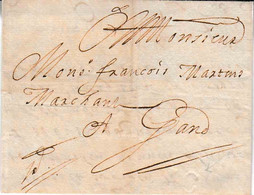 Monsieur
Mons: francois Martens
Marchant
A Gand